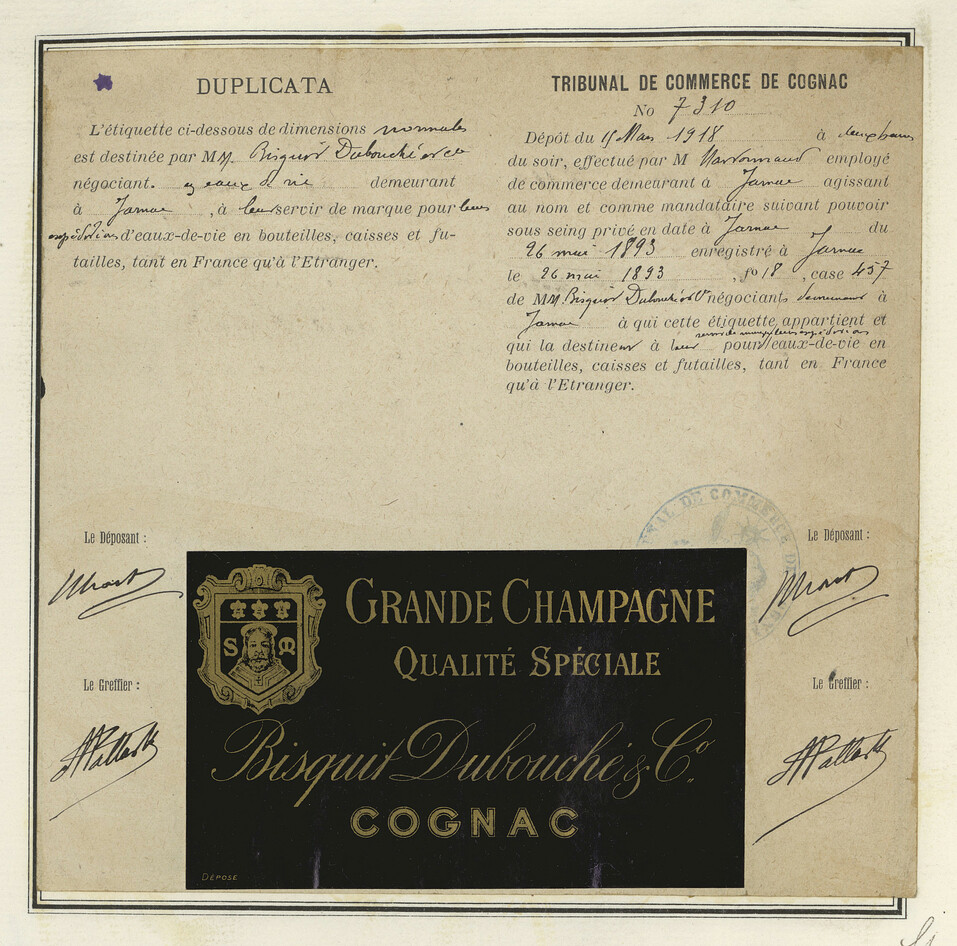 DUPLICATA
L'étiquette ci-dessous de dimensions normales
est destinée par MM. Bisquit Dubouché et Cie
négociant. en eaux de vie demeurant
à Jarnac, à leur servir de marque pour leurs
expéditions d'eaux-de-vie en bouteilles, caisses et fu-
tailles, tant en France qu'à l'Etranger.
TRIBUNAL DE COMMERCE DE COGNAC
No 7310
Dépôt du 15 Mars 1918 à deux heures
du soir, effectué par M employé
de commerce demeurant à Jarnac agissant
au nom et comme mandataire suivant pouvoir
sous seing privé en date à Jarnac du
26 mai 1893 enregistré à Jarnac
le 26 mai 1893, fo 18, case 457
de MM. Bisquit Dubouché et Co négociants demeurant à
Jarnac à qui cette étiquette appartient et
qui la destinent à leur servir de marque pour leurs expéditions d'eaux-de-vie en
bouteilles, caisses et futailles, tant en France
qu'à l'Etranger.
TRIBUNAL DE COMMERCE DE
Le Déposant :
Le Déposant :
Le Greffier :
Le Greffier :
S M
GRANDE CHAMPAGNE
QUALITÉ SPÉCIALE
Bisquit Dubouché & Co.
COGNAC
DÉPOSÉ